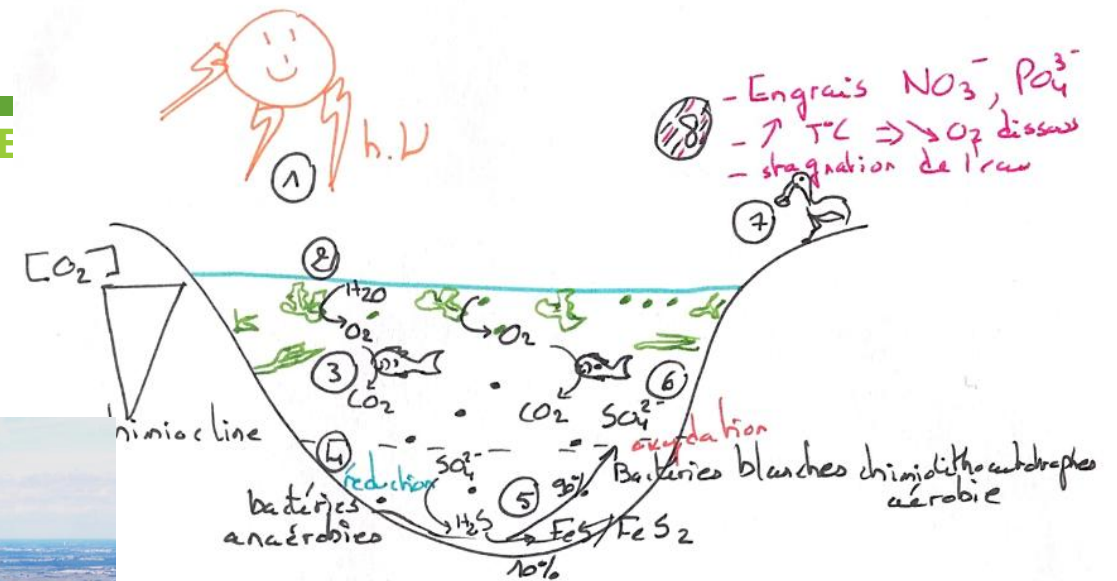 E
h.ν
1
8
- Engrais NO₃⁻, PO₄³⁻
- ↗ T°C ⇒ ↘ O₂ dissous
- stagnation de l'eau
7
[O₂]
2
H₂O
O₂
O₂
3
6
CO₂
CO₂
SO₄²⁻
himiocline
4
oxydation
SO₄²⁻
réduction
5
90%
Bactéries blanches chimiolithoautotrophes
aérobie
bactéries
anaérobies
H₂S
FeS/FeS₂
10%